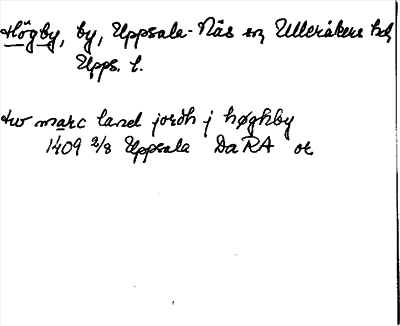 Högby, by, Uppsala-Näs sn, Ulleråkers hd,
Upps. l.
tw marc land jordh j høghby
1409 2/8 Uppsala DaRA or